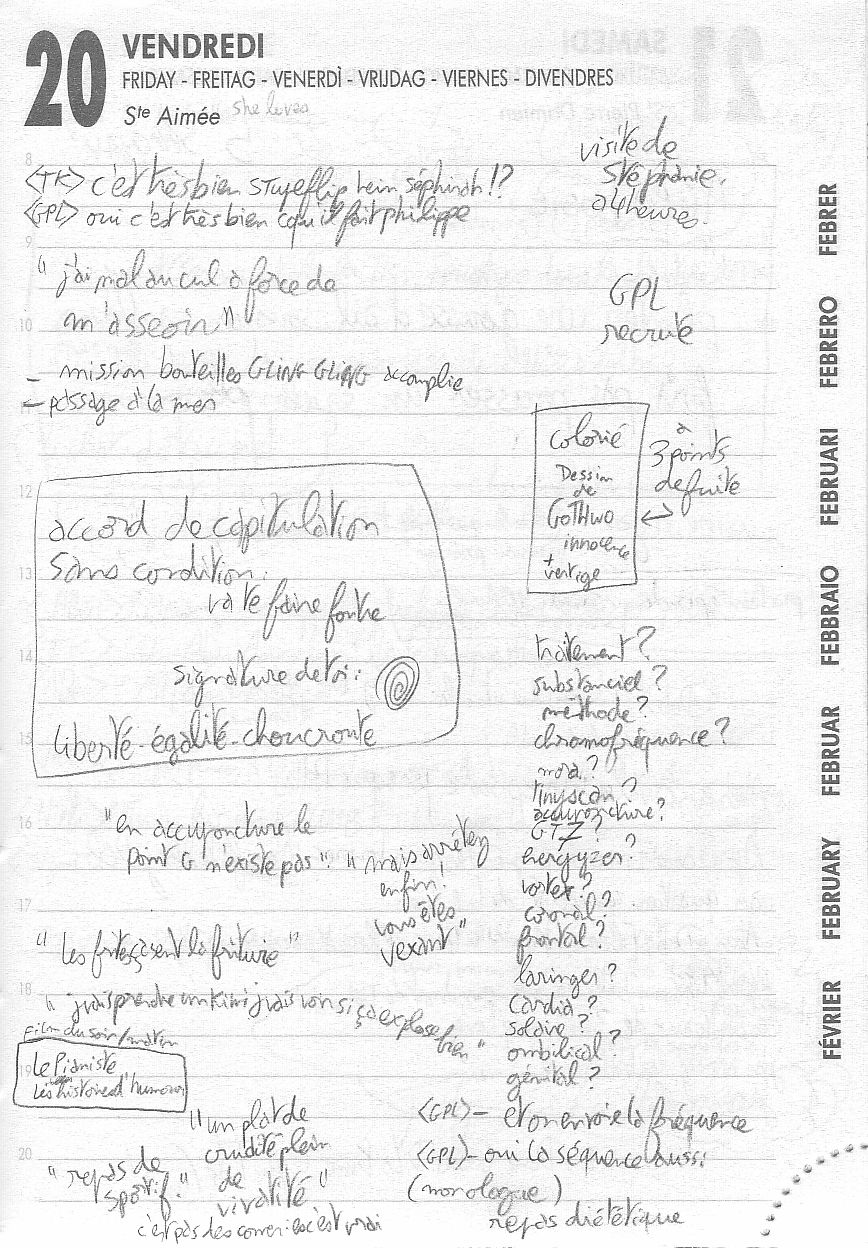 20 VENDREDI
FRIDAY - FREITAG - VENERDÌ - VRIJDAG - VIERNES - DIVENDRES
Ste Aimée she loves
visite de
Stéphanie.
a 4 heures.
<TK> c'est très bien stupeflip hein séphirah!?
<GPL> oui c'est très bien cqu'il fait philippe
"j'ai mal au cul a force de
m'asseoir"
GPL
recrute
- mission bouteilles GLING GLING accomplie
- passage à la mer
colorié
Dessin
de
GOTHWO
innocence
+
vertige
a
3 points
de fuite
accord de capitulation
sans condition:
va te faire foutre
signature de toi:
liberté - égalité - choucroute
traitement?
substanciel?
méthode?
chromofréquence?
mora?
tinyscan?
accuponcture?
GTZ?
energyzer?
vortex?
coronal?
frontal?
laringer?
cardia?
solaire?
ombilical?
génital?
"en accuponcture le
point G n'existe pas"
"mais arrêtez
enfin!
vous êtes
vexant"
"les frites ça sent la friture"
"j'vais prendre un kiwi j'vais voir si ça explose bien"
Film du soir/matin
Le Pianiste
Les histoires d'humour
"un plat de
crudité plein
de
vivalité"
"repas de
sportif."
c'est pas des conneries c'est vrai
<GPL> - et on envoie la fréquence
<GPL> - oui la séquence aussi
(monologue)
repas diététique
FÉVRIER FEBRUARY FEBRUAR FEBBRAIO FEBRUARI FEBRERO FEBRER
8
9
10
11
12
13
14
15
16
17
18
19
20